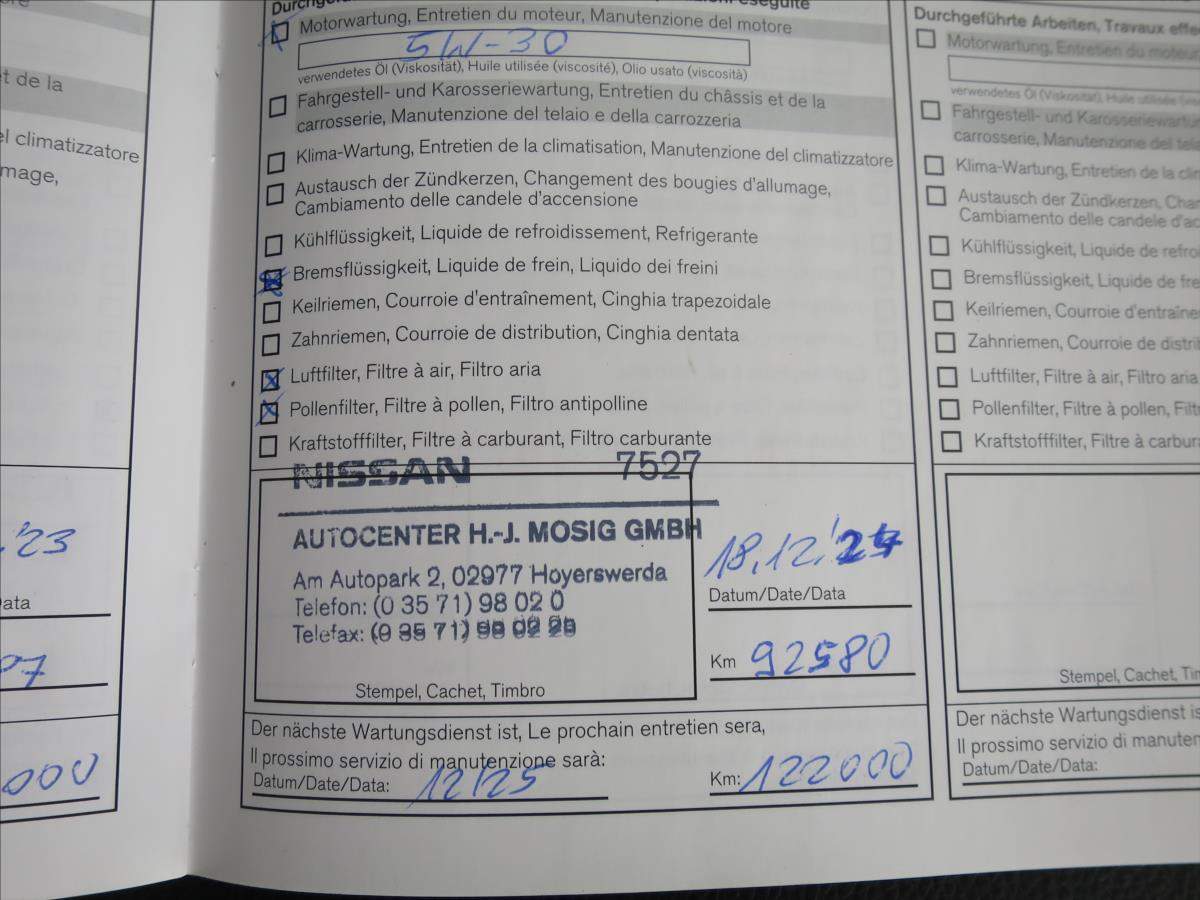 et de la
el climatizzatore
mage,
'23
Data
07
000
Motorwartung, Entretien du moteur, Manutenzione del motore
5W-30
verwendetes Öl (Viskosität), Huile utilisée (viscosité), Olio usato (viscosità)
Fahrgestell- und Karosseriewartung, Entretien du châssis et de la
carrosserie, Manutenzione del telaio e della carrozzeria
Klima-Wartung, Entretien de la climatisation, Manutenzione del climatizzatore
Austausch der Zündkerzen, Changement des bougies d'allumage,
Cambiamento delle candele d'accensione
Kühlflüssigkeit, Liquide de refroidissement, Refrigerante
Bremsflüssigkeit, Liquide de frein, Liquido dei freini
Keilriemen, Courroie d'entraînement, Cinghia trapezoidale
Zahnriemen, Courroie de distribution, Cinghia dentata
Luftfilter, Filtre à air, Filtro aria
Pollenfilter, Filtre à pollen, Filtro antipolline
Kraftstofffilter, Filtre à carburant, Filtro carburante
NISSAN 7527
AUTOCENTER H.-J. MOSIG GMBH
Am Autopark 2, 02977 Hoyerswerda
Telefon: (0 35 71) 98 02 0
Telefax: (0 35 71) 98 02 25
Stempel, Cachet, Timbro
18.12.'24
Datum/Date/Data
Km 92580
Der nächste Wartungsdienst ist, Le prochain entretien sera,
Il prossimo servizio di manutenzione sarà:
Datum/Date/Data: 12/25 Km: 122000
Durchgeführte Arbeiten, Travaux effe
Motorwartung, Entretien du moteur
verwendetes Öl (Viskosität), Huile utilisée
Fahrgestell- und Karosseriewartu
carrosserie, Manutenzione del tela
Klima-Wartung, Entretien de la clim
Austausch der Zündkerzen, Chan
Cambiamento delle candele d'ac
Kühlflüssigkeit, Liquide de refroi
Bremsflüssigkeit, Liquide de fre
Keilriemen, Courroie d'entraîne
Zahnriemen, Courroie de distrib
Luftfilter, Filtre à air, Filtro aria
Pollenfilter, Filtre à pollen, Filt
Kraftstofffilter, Filtre à carbur
Stempel, Cachet, Tim
Der nächste Wartungsdienst is
Il prossimo servizio di manuten
Datum/Date/Data: